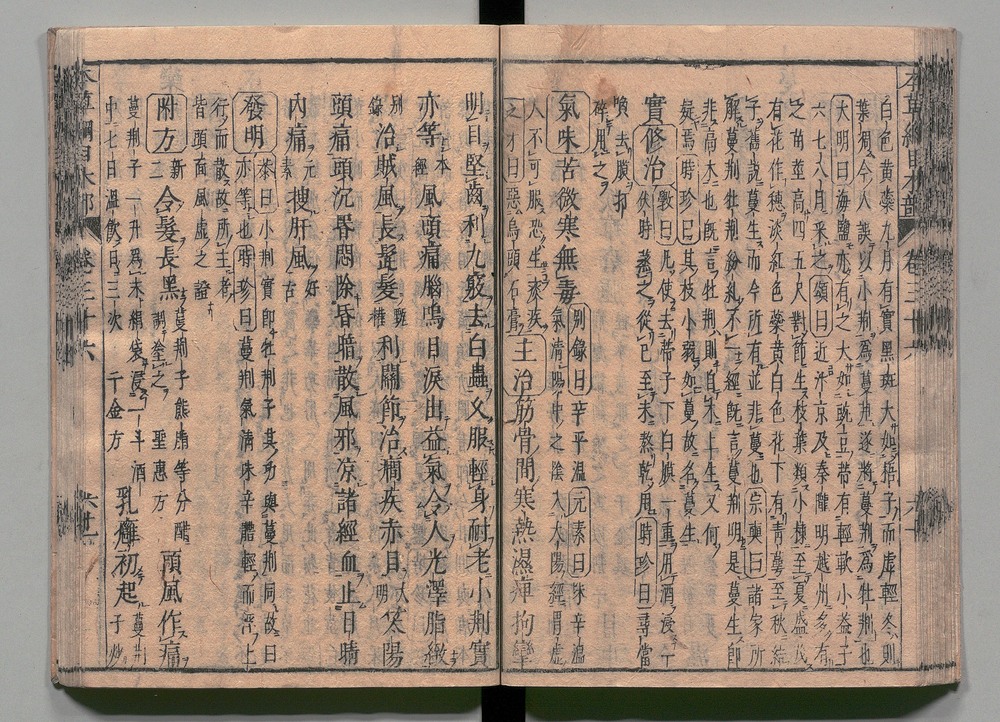 白色黄蘂九月有實黑斑大如梧子而虚輕冬則
葉凋今人誤以小荆爲蔓荆遂將蔓荆爲牡荆也
大明曰海鹽亦有之大如豌豆蒂有輕軟小益子
六七八月采之頌曰近汴京及秦隴明越州多有
之苗莖高四五尺對節生枝葉類小楝至夏盛茂
有花作穗淡紅色蘂黄白色花下有青萼至秋結
子舊説蔓生而今所有並非蔓也宗奭曰諸家所
解蔓荆牡荆紛糺不一經既言蔓荆明是蔓生即
非高木也既言牡荆則自木上生又何
疑焉時珍曰其枝小弱如蔓故名蔓生
實修治斆曰凡使去蒂子下白膜一重用酒浸一
伏時蒸之從巳至未熬乾用時珍曰尋常
喚去膜打
碎用之
氣味苦微寒無毒别録曰辛平温元素曰味辛温
氣清陽中之陰入太陽經胃虚
人不可服恐生痰疾
之才曰惡烏頭石膏主治筋骨間寒熱濕痺拘攣
明目堅齒利九竅去白蟲久服輕身耐老小荆實
亦等本
經風頭痛腦鳴目淚出益氣令人光澤脂緻
别
録治賊風長髭髮甄
權利關節治癇疾赤目大
明太陽
頭痛頭沉昏悶除昏暗散風邪凉諸經血止目睛
内痛元
素搜肝風好
古
發明恭曰小荆實即牡荆子其功與蔓荆同故曰
亦等也時珍曰蔓荆氣清味辛體輕而浮上
行而散故所主者
皆頭面風虚之證
附方新
二令髮長黑蔓荆子熊脂等分醋
調塗之聖惠方頭風作痛
蔓荆子一升爲末絹袋浸一斗酒
中七日温飲日三次千金方乳癰初起蔓荆
子炒
本草綱目木部
卷三十六